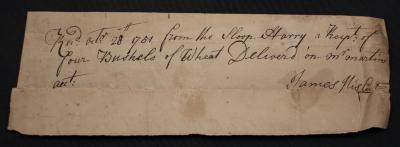 Recd. octr. 28th 1781 from the Sloop Harry a Receipt. of
four Bushels of Wheat Deliverd on mr martin
act.
James